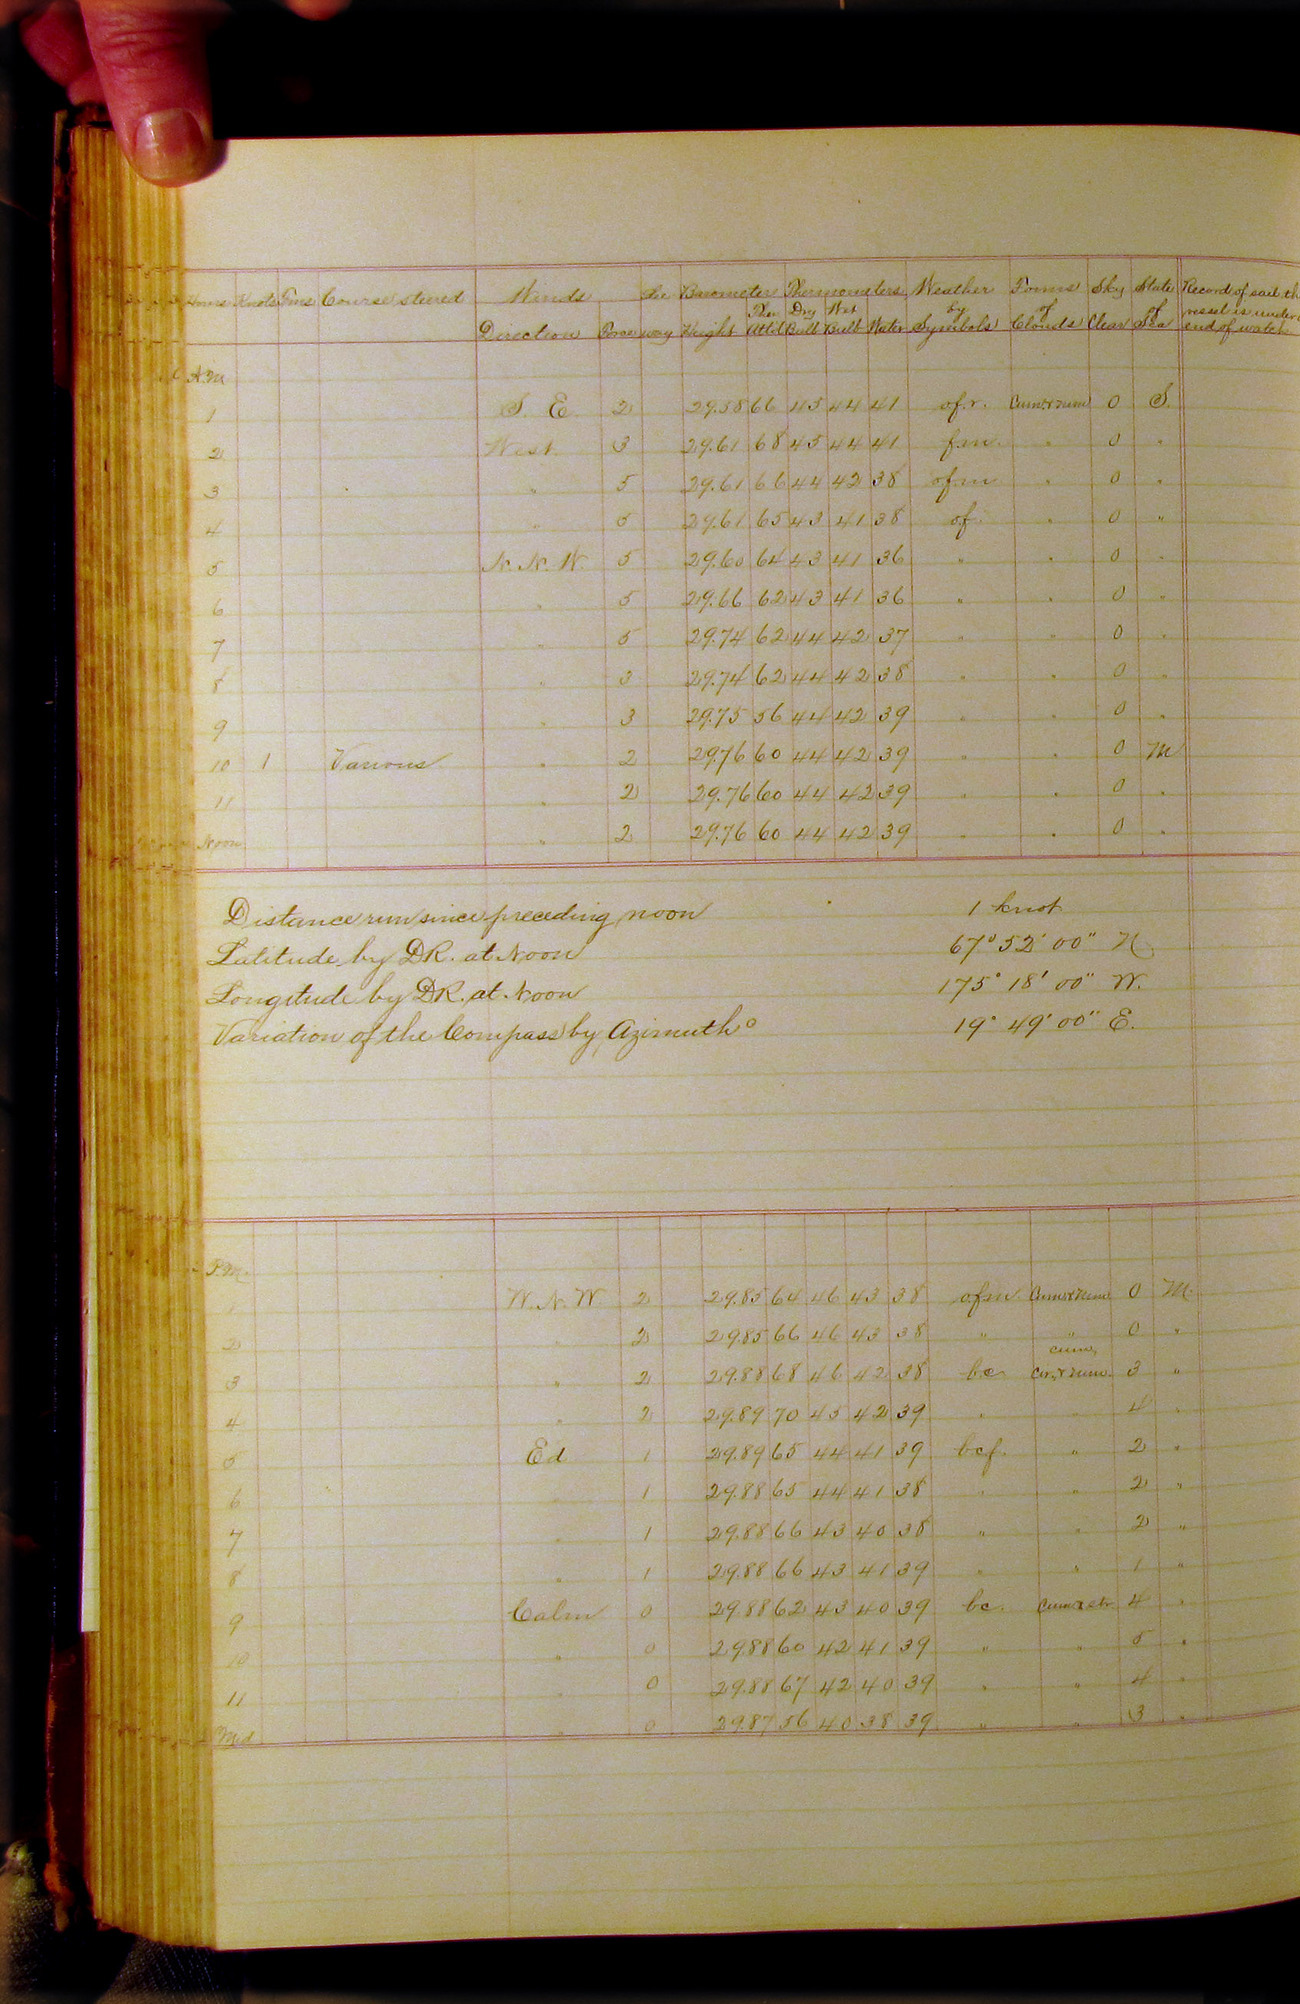 Hours Knots Fms Course steered Winds Lee Barometer Thermometers Weather Forms Sky State Record of sail th
Direction Force way Height Ther Att'd Dry Bulb Wet Bulb Water by Symbols of Clouds Clear of Sea vessel is under
end of watch
A.M
1 S. E. 2 29.58 66 45 44 41 of.r. Cum & nim 0 S.
2 West 3 29.61 68 45 44 41 fm. " 0 "
3 " 5 29.61 66 44 42 38 ofm " 0 "
4 " 5 29.61 65 43 41 38 of. " 0 "
5 N. N. W 5 29.60 64 43 41 36 " " 0 "
6 " 5 29.66 62 43 41 36 " " 0 "
7 " 5 29.74 62 44 42 37 " " 0 "
8 " 3 29.74 62 44 42 38 " " 0 "
9 " 3 29.75 56 44 42 39 " " 0 "
10 1 Various " 2 29.76 60 44 42 39 " " 0 M
11 " 2 29.76 60 44 42 39 " " 0 "
Noon " 2 29.76 60 44 42 39 " " 0 "
Distance run since preceding noon 1 knot
Latitude by DR. at Noon 67° 52' 00" N.
Longitude by DR. at Noon 175° 18' 00" W.
Variation of the Compass by Azimuth° 19° 49' 00" E.
P.M.
1 W. N. W 2 29.85 64 46 43 38 ofm Cum & Nim 0 M.
2 " 2 29.85 66 46 43 38 " " 0 "
cum,
3 " 2 29.88 68 46 42 38 bc Cir, & nim. 3 "
4 " 2 29.89 70 45 42 39 " " 4 "
5 Ed 1 29.89 65 44 41 39 bcf. " 2 "
6 " 1 29.88 65 44 41 38 " " 2 "
7 " 1 29.88 66 43 40 38 " " 2 "
8 " 1 29.88 66 43 41 39 " " 1 "
9 Calm 0 29.88 62 43 40 39 bc. Cum & str 4 "
10 " 0 29.88 60 42 41 39 " " 5 "
11 " 0 29.88 67 42 40 39 " " 4 "
Mid " 0 29.87 56 40 38 39 " " 3 "